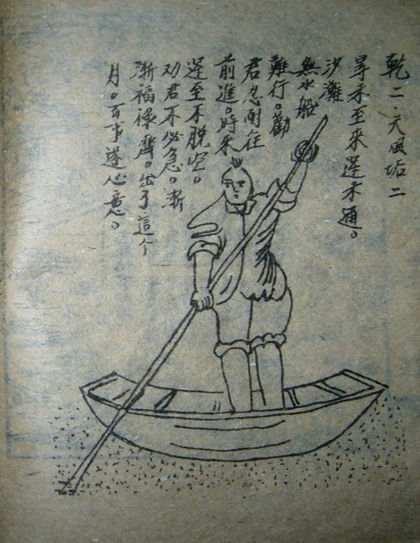 乾二、天風垢二
至來運未通。
沙灘
無水船
難行。勸
君忍耐往
前進。時來
運至不脱空。
劝君不必急。漸
漸福祿齊。出了這个
月。百事遂心意。